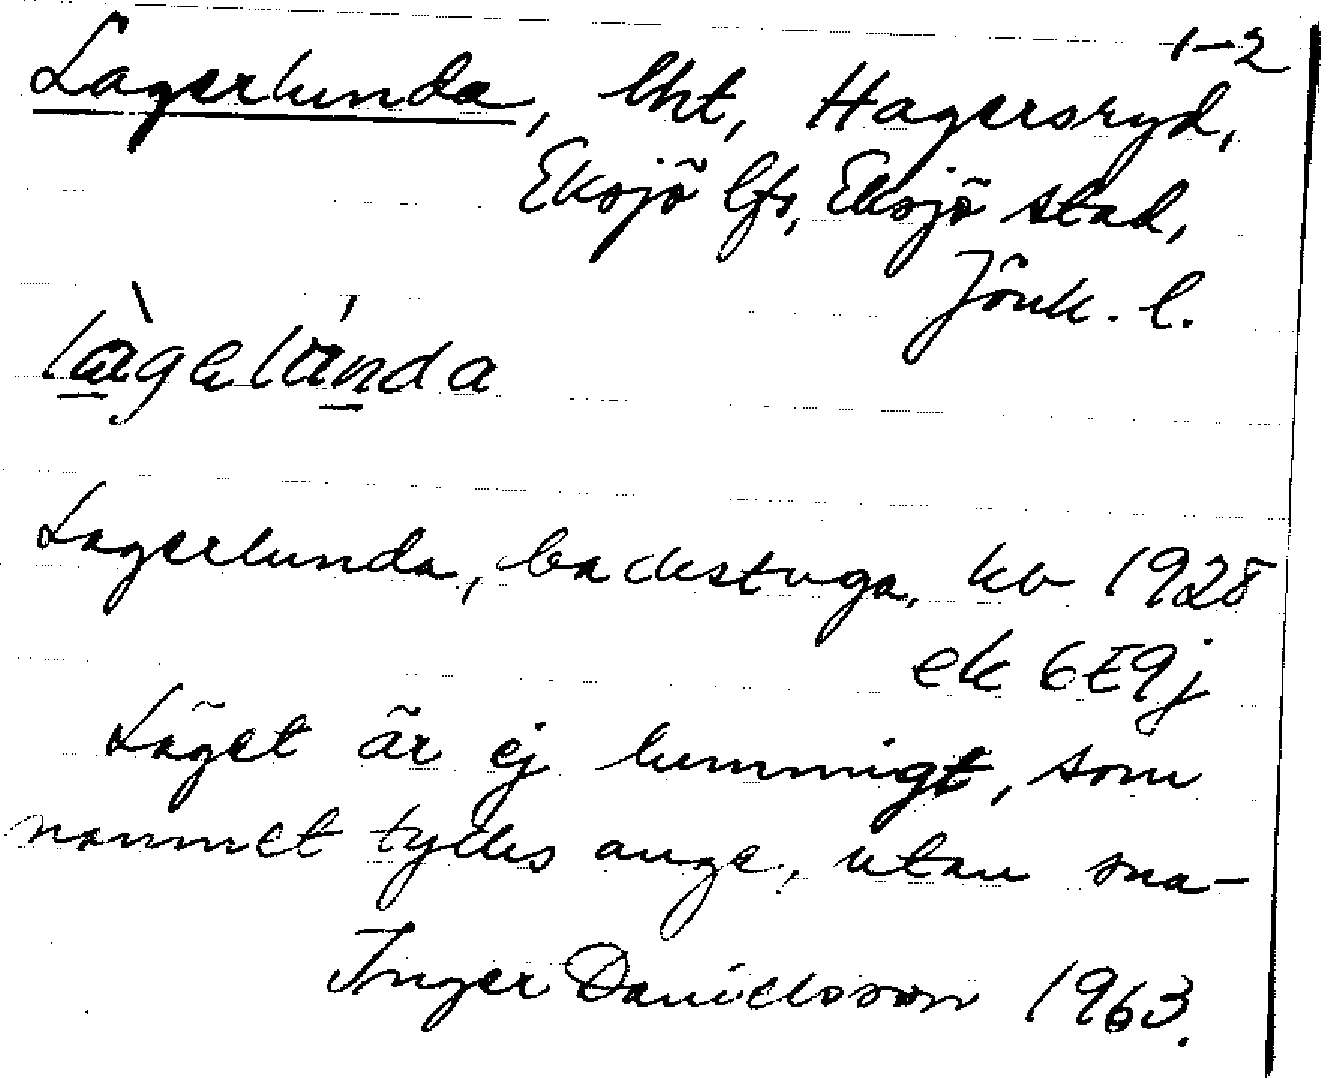 1-2
Lagerlunda, lht, Hagersryd,
Eksjö lfs, Eksjö stad,
Jönk. l.
Lagerlunda, backstuga, kb 1928
ek 6E9j
Läget är ej lummigt, som
namnet tydes ange, utan sna-
Inger Danielsson 1963.